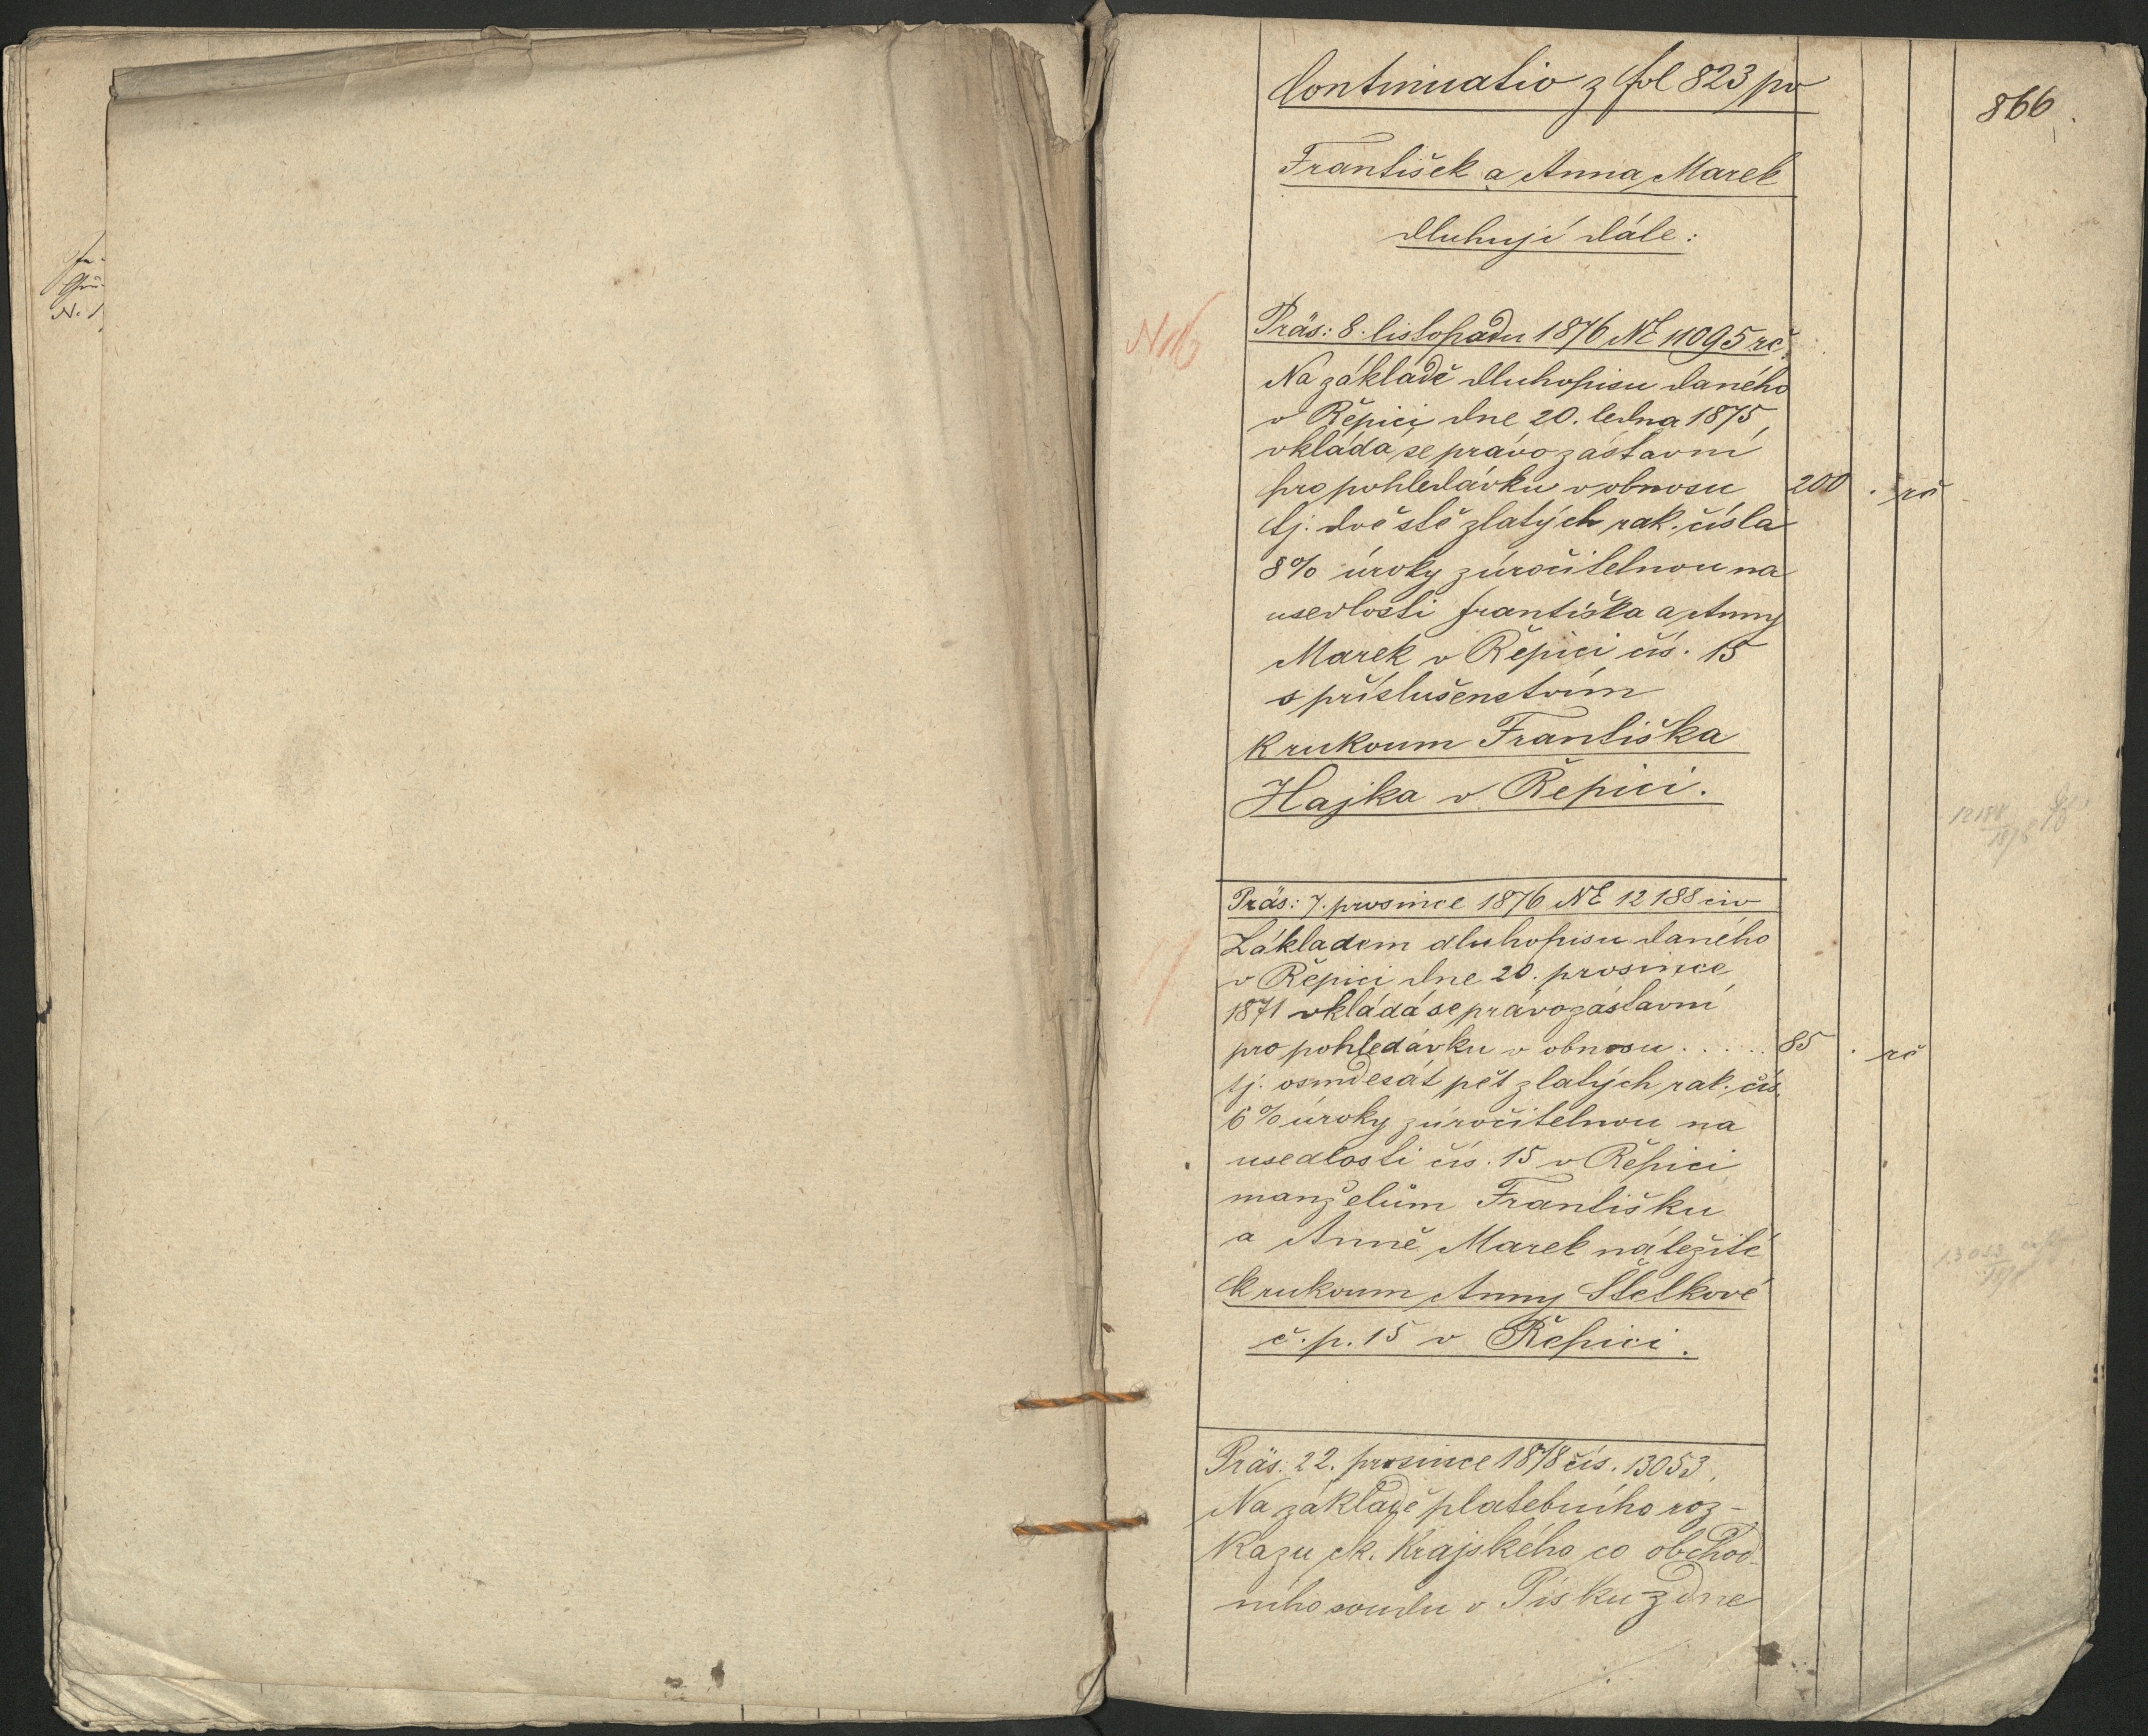 Continuatio z fol 823 pv
866.
František a Anna Marek
dluhují dále:
N 16
Präs: 8. listopadu 1876 NE 11095 rč.
Na základě dluhopisu daného
v Řepici dne 20. ledna 1875,
vkládá se právo zástavní
pro pohledávku v obnosu 200 . rč
tj. dvě stě zlatých rak. čísla
8% úroky zúročitelnou na
usedlosti Františka a Anny
Marek v Řepici čís. 15
s příslušenstvím
k rukoum Františka
Hajka v Řepici.
12188
1876
Präs: 7. prosince 1876 NE 12188 civ
17
Základem dluhopisu daného
v Řepici dne 20. prosince
1871 vkládá se právo zástavní
pro pohledávku v obnosu . . . . . 85 . rč
tj. osmdesát pět zlatých rak. čís.
6% úroky zúročitelnou na
usedlosti čís. 15 v Řepici
manželům Františku
a Anně Marek náležité
k rukoum Anny Štetkové
č. p. 15 v Řepici.
13053
Präs: 22. prosince 1878 čís. 13053.
Na základě platebního roz-
kazu ck. krajského co obchod-
ního soudu v Písku z dne